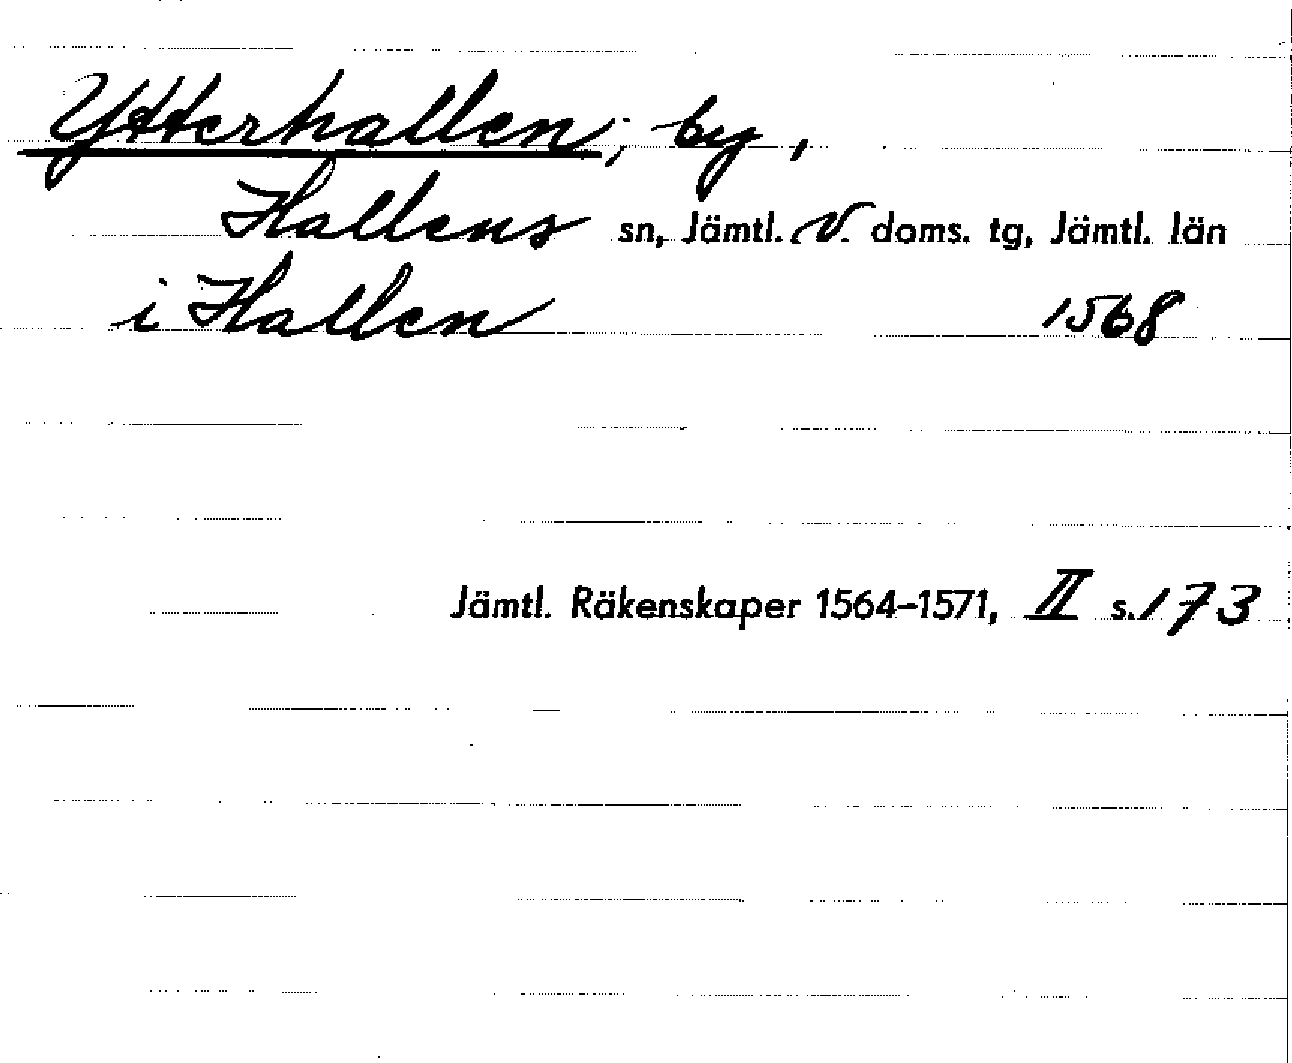 Ytterhallen, by,
Hallens sn, Jämtl. V. doms. tg, Jämtl. län
i Hallen 1568
Jämtl. Räkenskaper 1564–1571, II s. 173